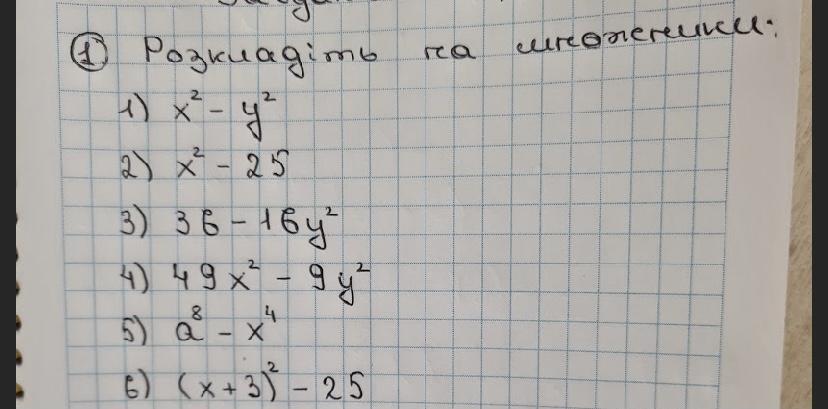 ① Розкладіть на множники:
1) x² - y²
2) x² - 25
3) 36 - 16y²
4) 49x² - 9y²
5) a⁸ - x⁴
6) (x+3)² - 25